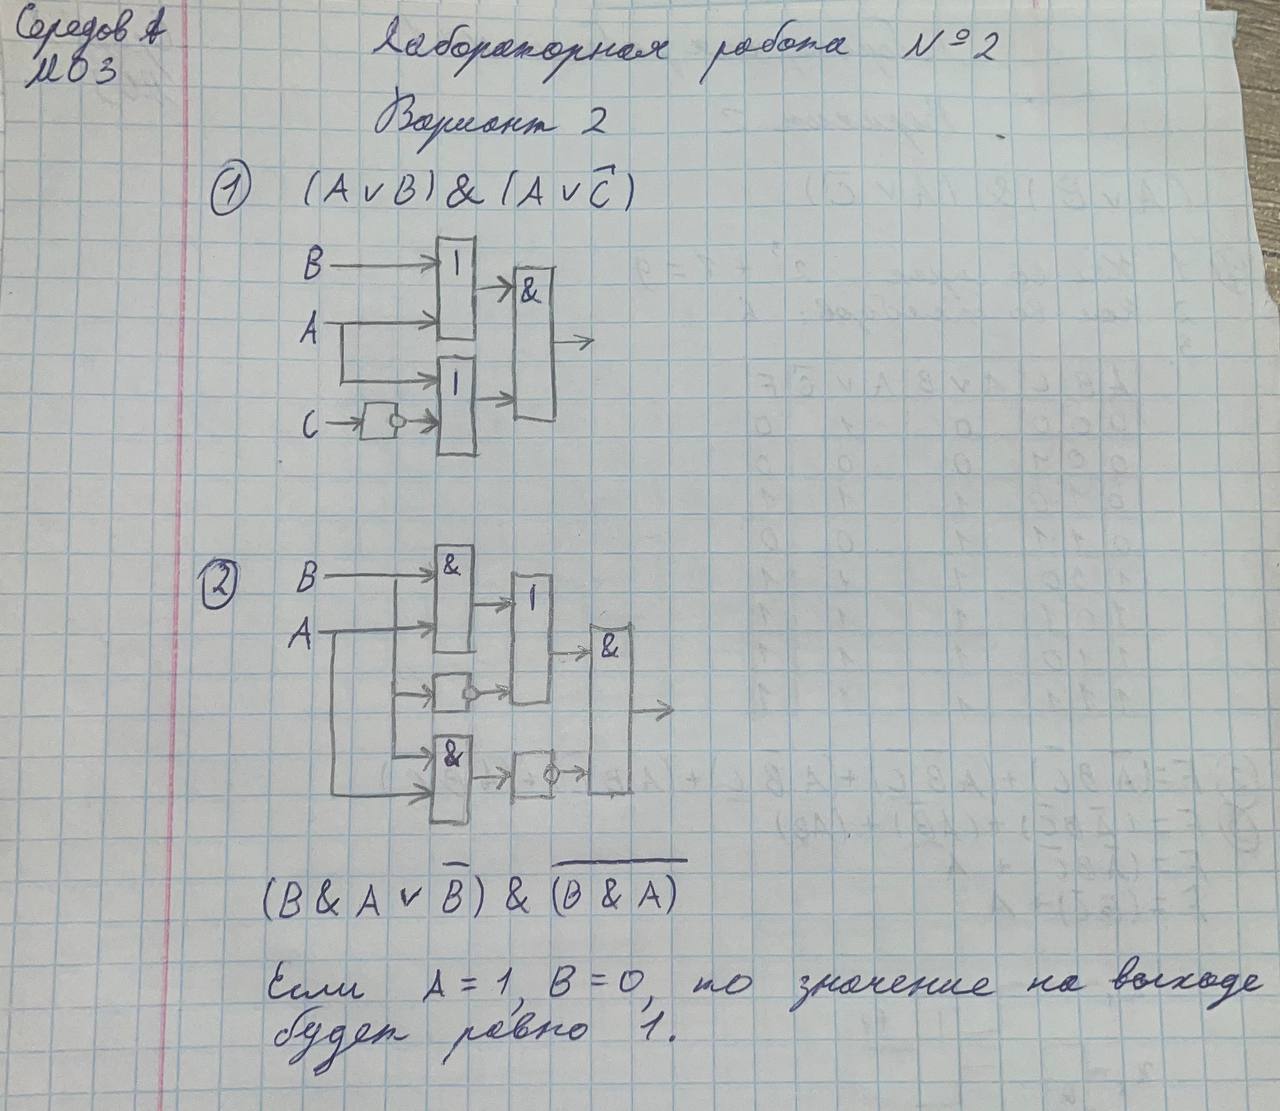 Середов А
М03
Лабораторная работа №2
Вариант 2
① (A ∨ B) & (A ∨ C̅)
B 1
&
A
1
C
② B &
1
A
&
&
(B & A ∨ B̅) & (B̅ ̅&̅ ̅A̅)
Если A = 1, B = 0, то значение на выходе
будет равно 1.